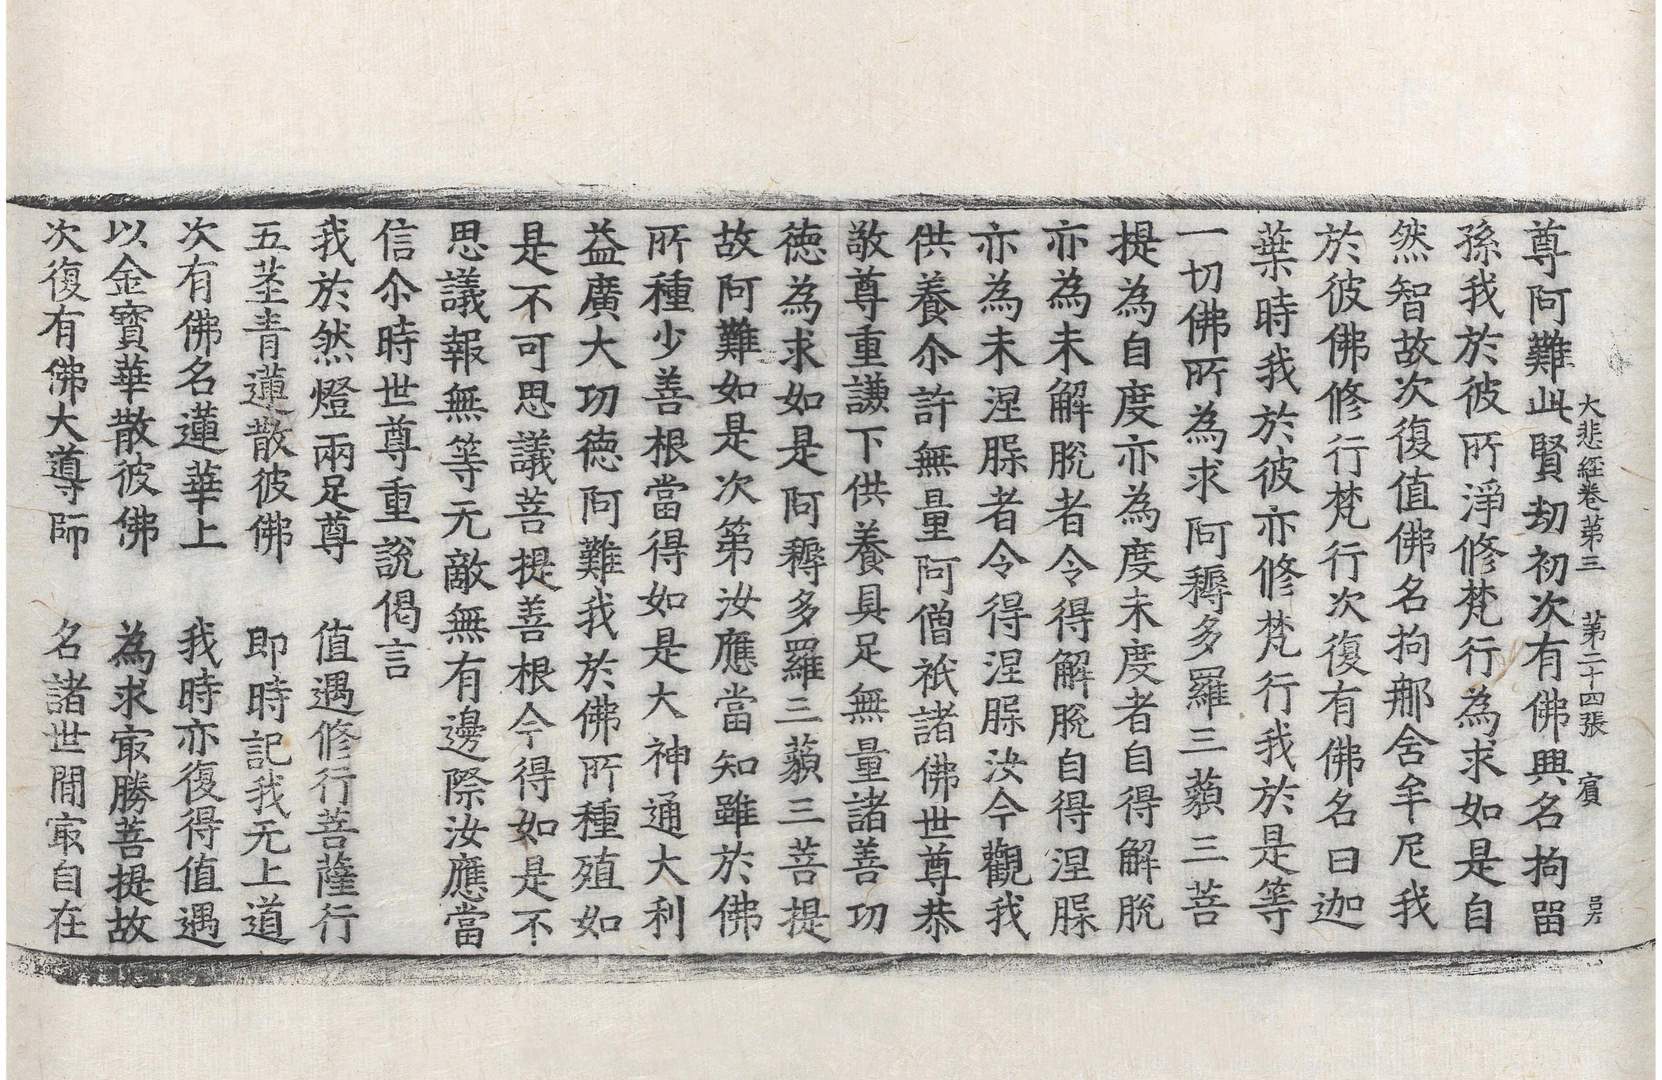 大悲經卷第三 第二十四張 賔
尊阿難此賢劫初次有佛興名拘留
孫我於彼所淨修梵行為求如是自
然智故次復值佛名拘那舍牟尼我
於彼佛修行梵行次復有佛名曰迦
葉時我於彼亦修梵行我於是等
一切佛所為求阿耨多羅三藐三菩
提為自度亦為度未度者自得解脫
亦為未解脫者令得解脫自得涅槃
亦為未涅槃者令得涅槃汝今觀我
供養尒許無量阿僧祇諸佛世尊恭
敬尊重謙下供養具足無量諸善功
德為求如是阿耨多羅三藐三菩提
故阿難如是次第汝應當知雖於佛
所種少善根當得如是大神通大利
益廣大功德阿難我於佛所種殖如
是不可思議菩提善根今得如是不
思議報無等无敵無有邊際汝應當
信尒時世尊重說偈言
我於然燈兩足尊 值遇修行菩薩行
五莖青蓮散彼佛 即時記我无上道
次有佛名蓮華上 我時亦復得值遇
以金寶華散彼佛 為求㝡勝菩提故
次復有佛大導師 名諸世間㝡自在